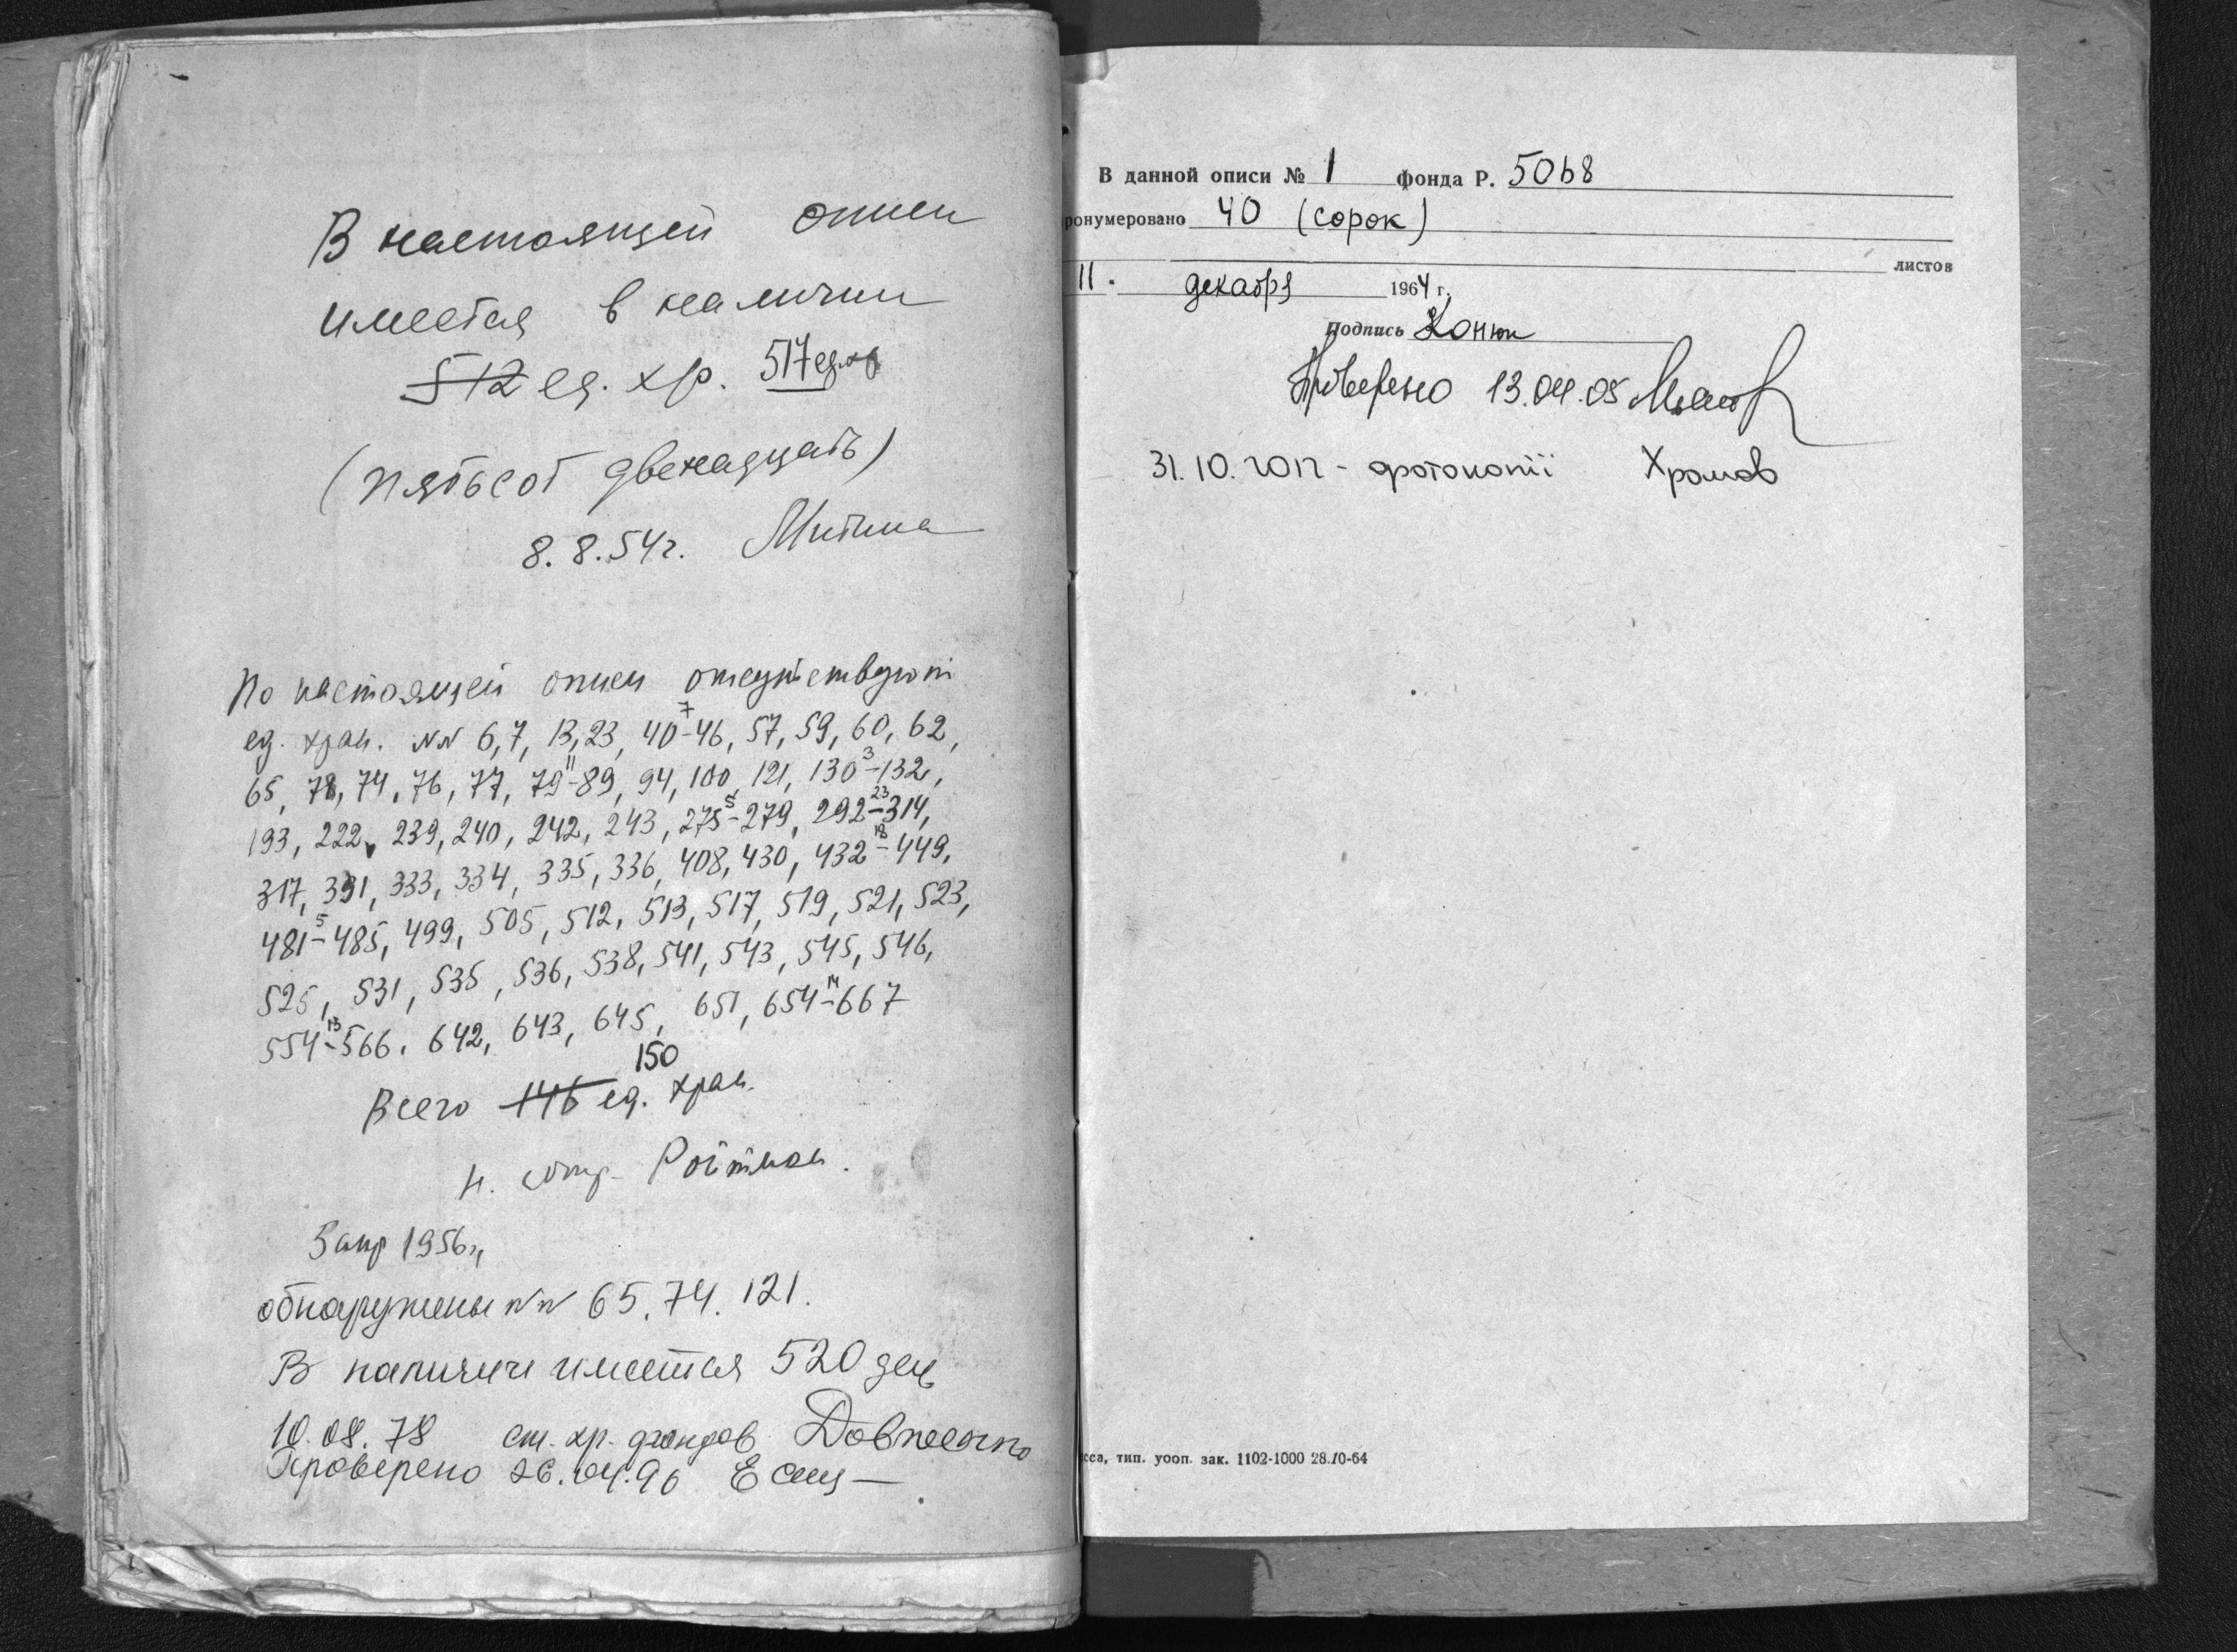 В настоящей описи
имеется в наличии
512 ед. хр. 517 ед.хр
(пятьсот двенадцать)
8.8.54г. Митина
По настоящей описи отсутствуют
ед. хран. №№ 6, 7, 13, 23, 40-46, 57, 59, 60, 62,
7
65, 78, 74, 76, 77, 79-89, 94, 100, 121, 130-132,
11 3
193, 222, 239, 240, 242, 243, 275-279, 292-314,
5 23
317, 331, 333, 334, 335, 336, 408, 430, 432-449,
18
481-485, 499, 505, 512, 513, 517, 519, 521, 523,
5
525, 531, 535, 536, 538, 541, 543, 545, 546,
554-566, 642, 643, 645, 651, 654-667
13 14
150
Всего 146 ед. хран.
Ройтман.
1956г,
обнаружены №№ 65. 74. 121.
В наличии имеется 520 дел
10.08.78 ст. хр. фондов Довженко
Проверено 26.04.96
В данной описи № 1 фонда Р. 5068
ронумеровано 40 (сорок)
листов
11. декабря 1964 г.
подпись Конюк
Проверено 13.04.05
31.10.2012 - фотокопії Хромов
сса, тип. уооп. зак. 1102-1000 28.10-64